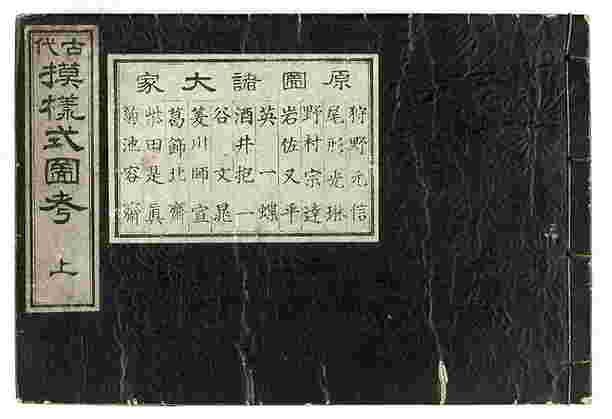 古代
摸樣式圖考 上
原圖諸大家
狩野元信
尾形光琳
野村宗達
岩佐又平
英一蝶
酒井抱一
谷文晁
菱川師宣
葛飾北齋
柴田是眞
菊池容齋